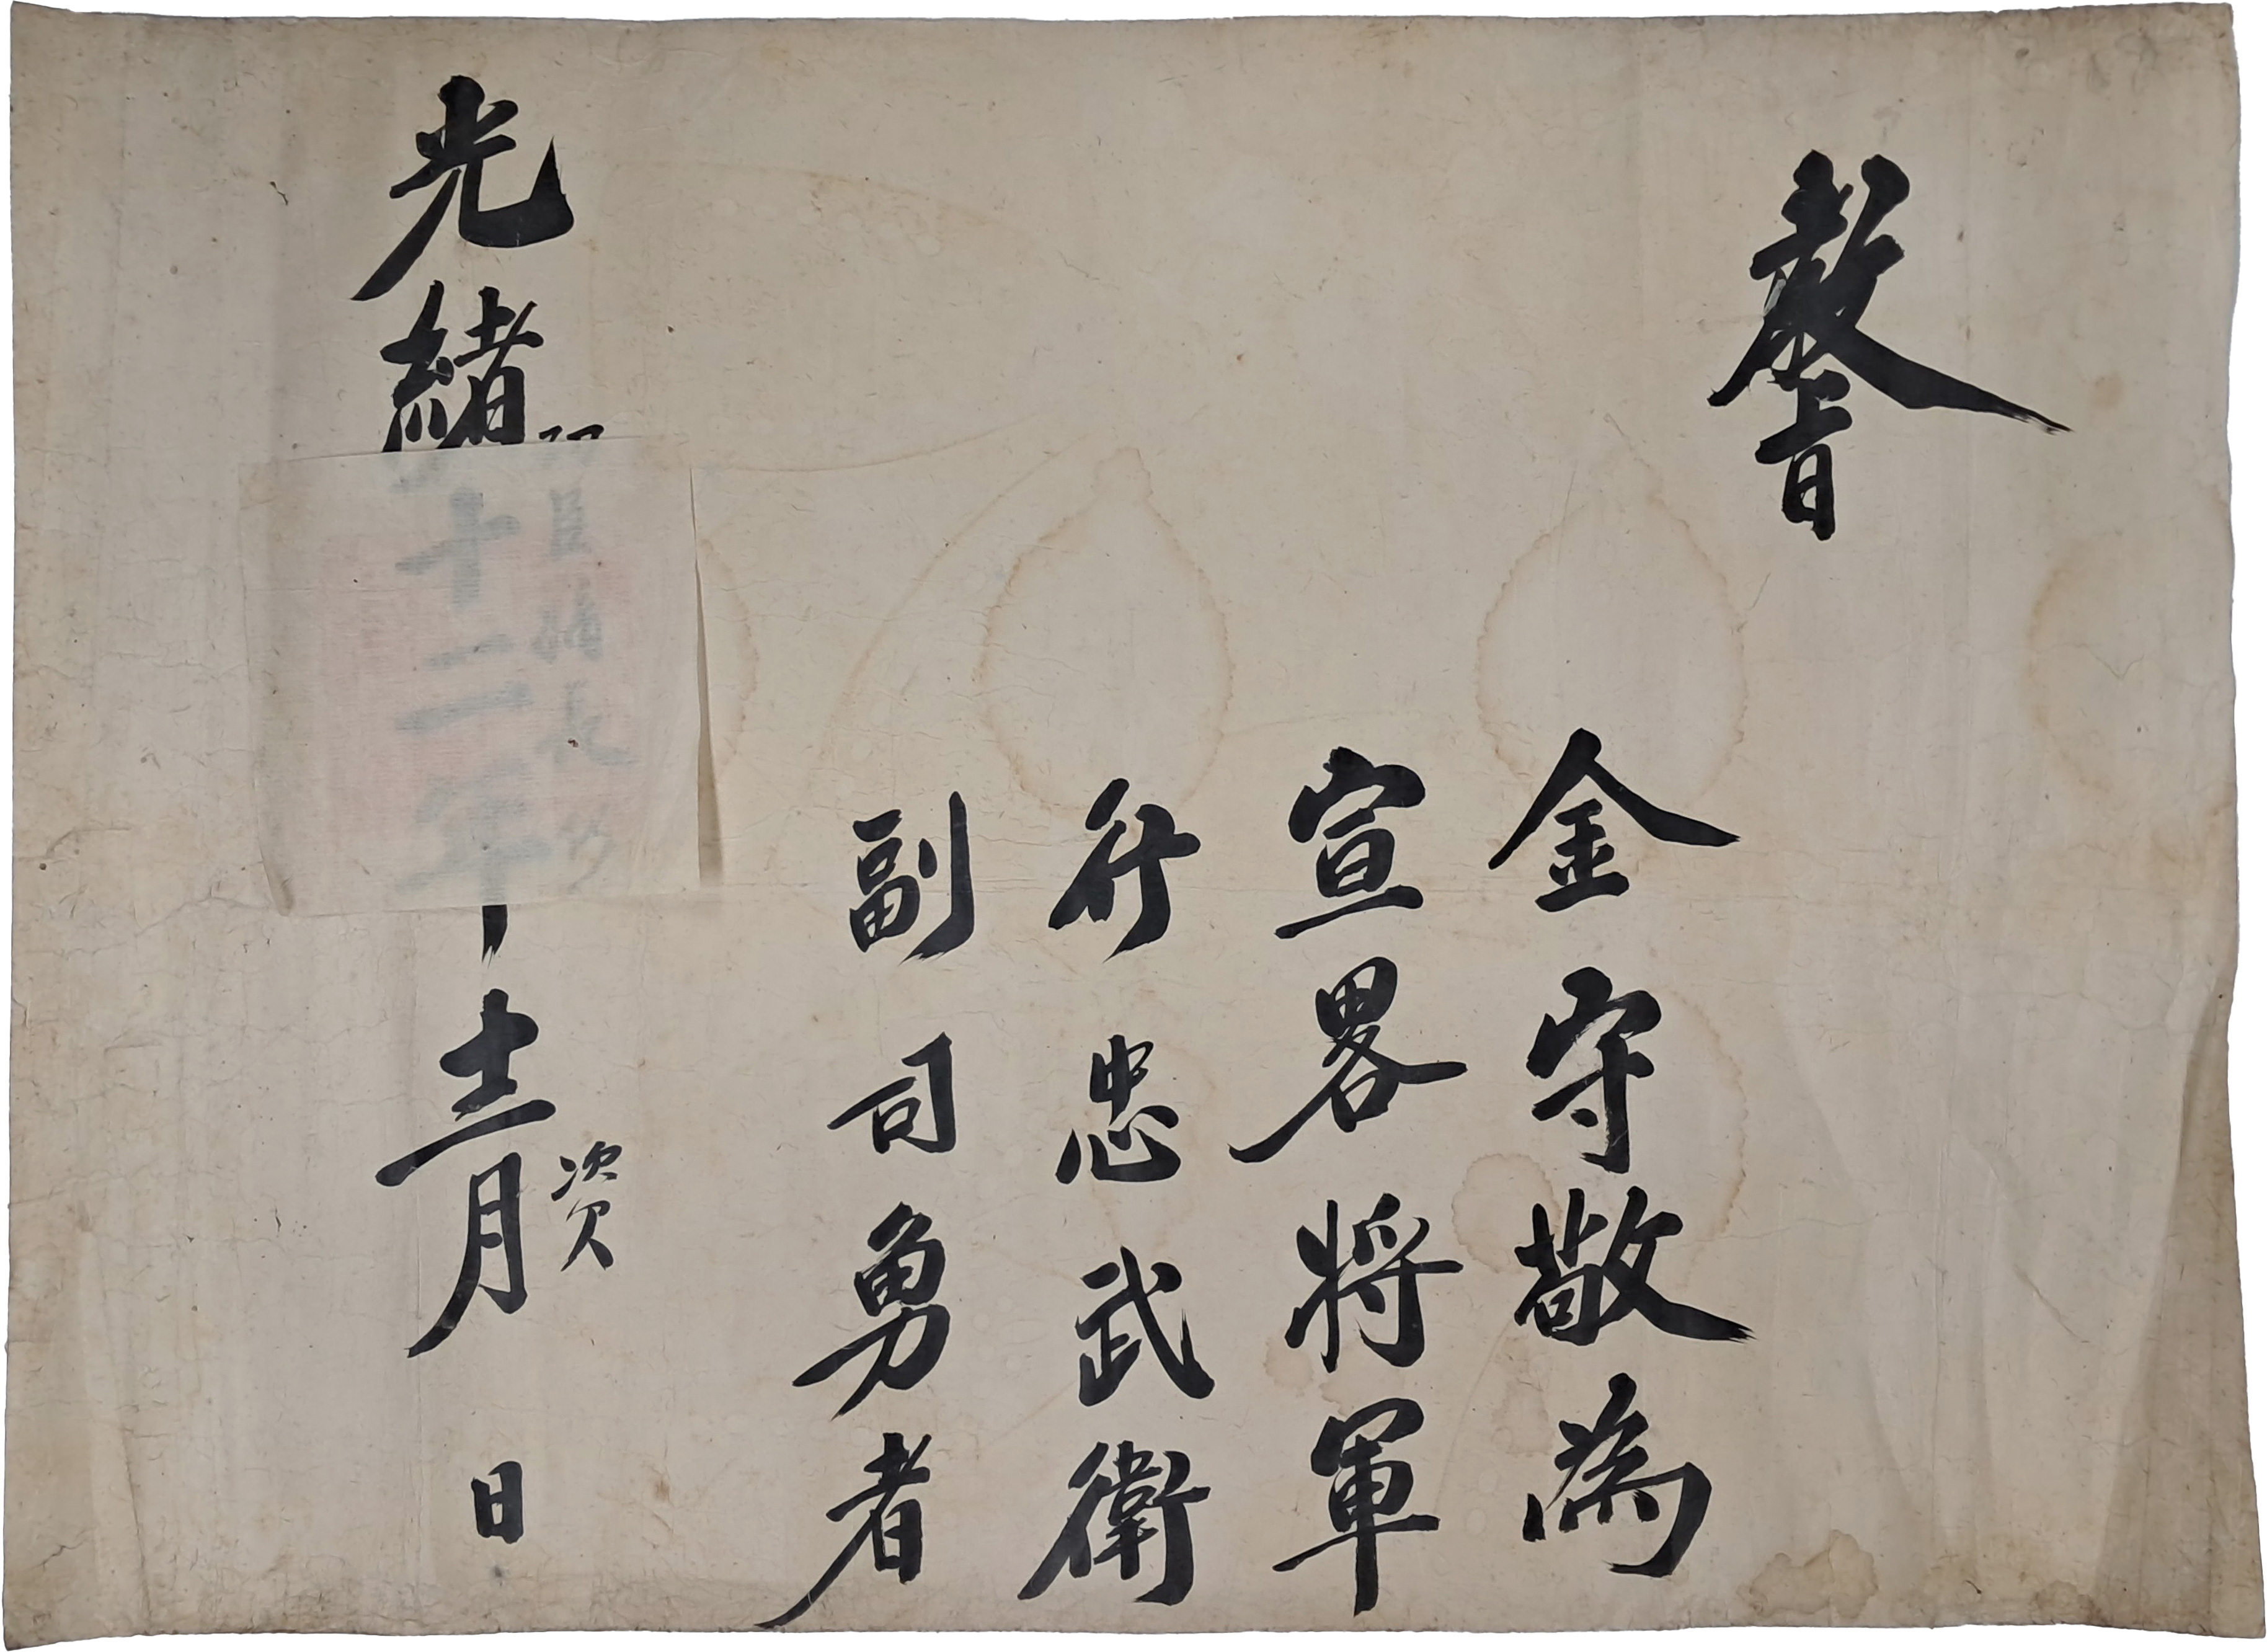 教旨
金守敬為
宣畧将軍
行忠武衛
副司勇者
光緒十二年十二月 日